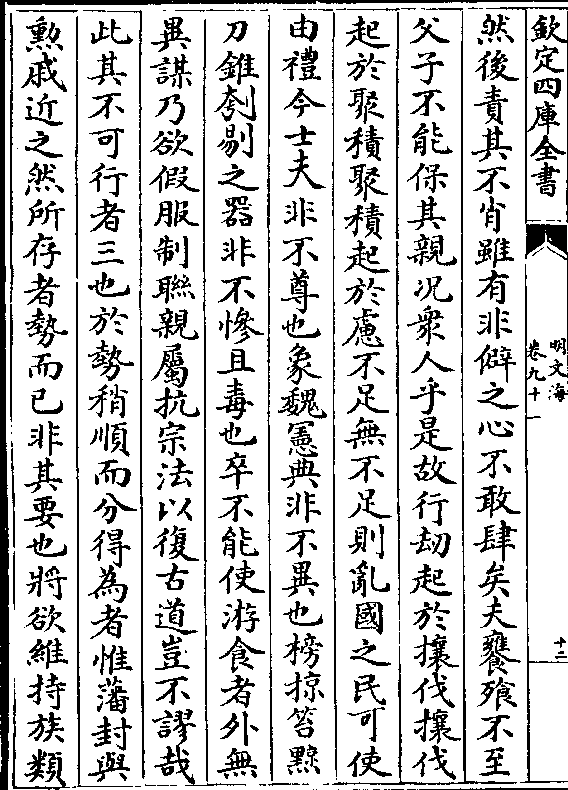 欽定四庫全書
明文海
卷九十一
十二
然後責其不肖雖有非僻之心不敢肆矣夫饔飱不至
父子不能保其親况衆人乎是故行劫起於攘伐攘伐
起於聚積聚積起於慮不足無不足則亂國之民可使
由禮今士夫非不尊也象魏憲典非不異也榜掠笞黥
刀錐刳剔之器非不慘且毒也卒不能使游食者外無
異謀乃欲假服制聯親屬抗宗法以復古道豈不謬哉
此其不可行者三也於勢稍順而分得為者惟藩封與
勲戚近之然所存者勢而已非其要也將欲維持族類